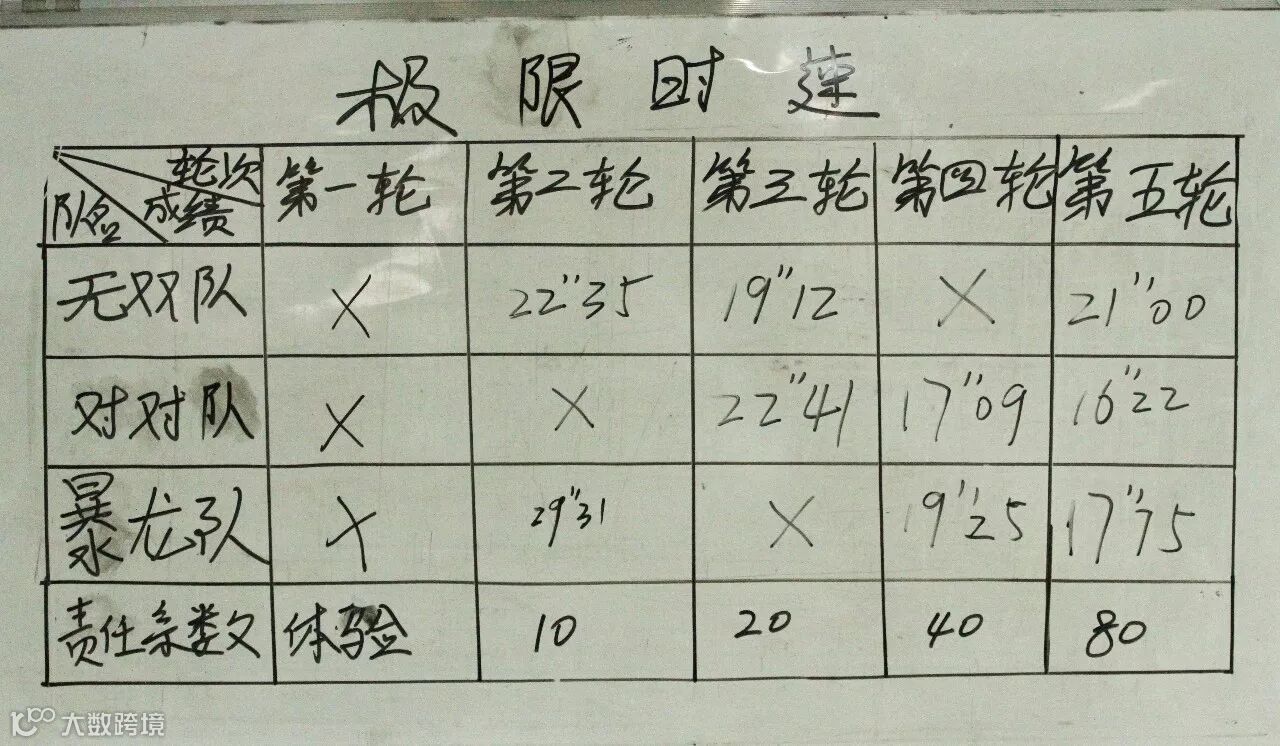 极限时速
轮次 第一轮 第二轮 第三轮 第四轮 第五轮
队名 成绩
无双队 X 22"35 19"12 X 21"00
对对队 X X 22"41 17"09 16"22
暴龙队 X 29"31 X 19"25 17"75
责任系数 体验 10 20 40 80
大数跨境